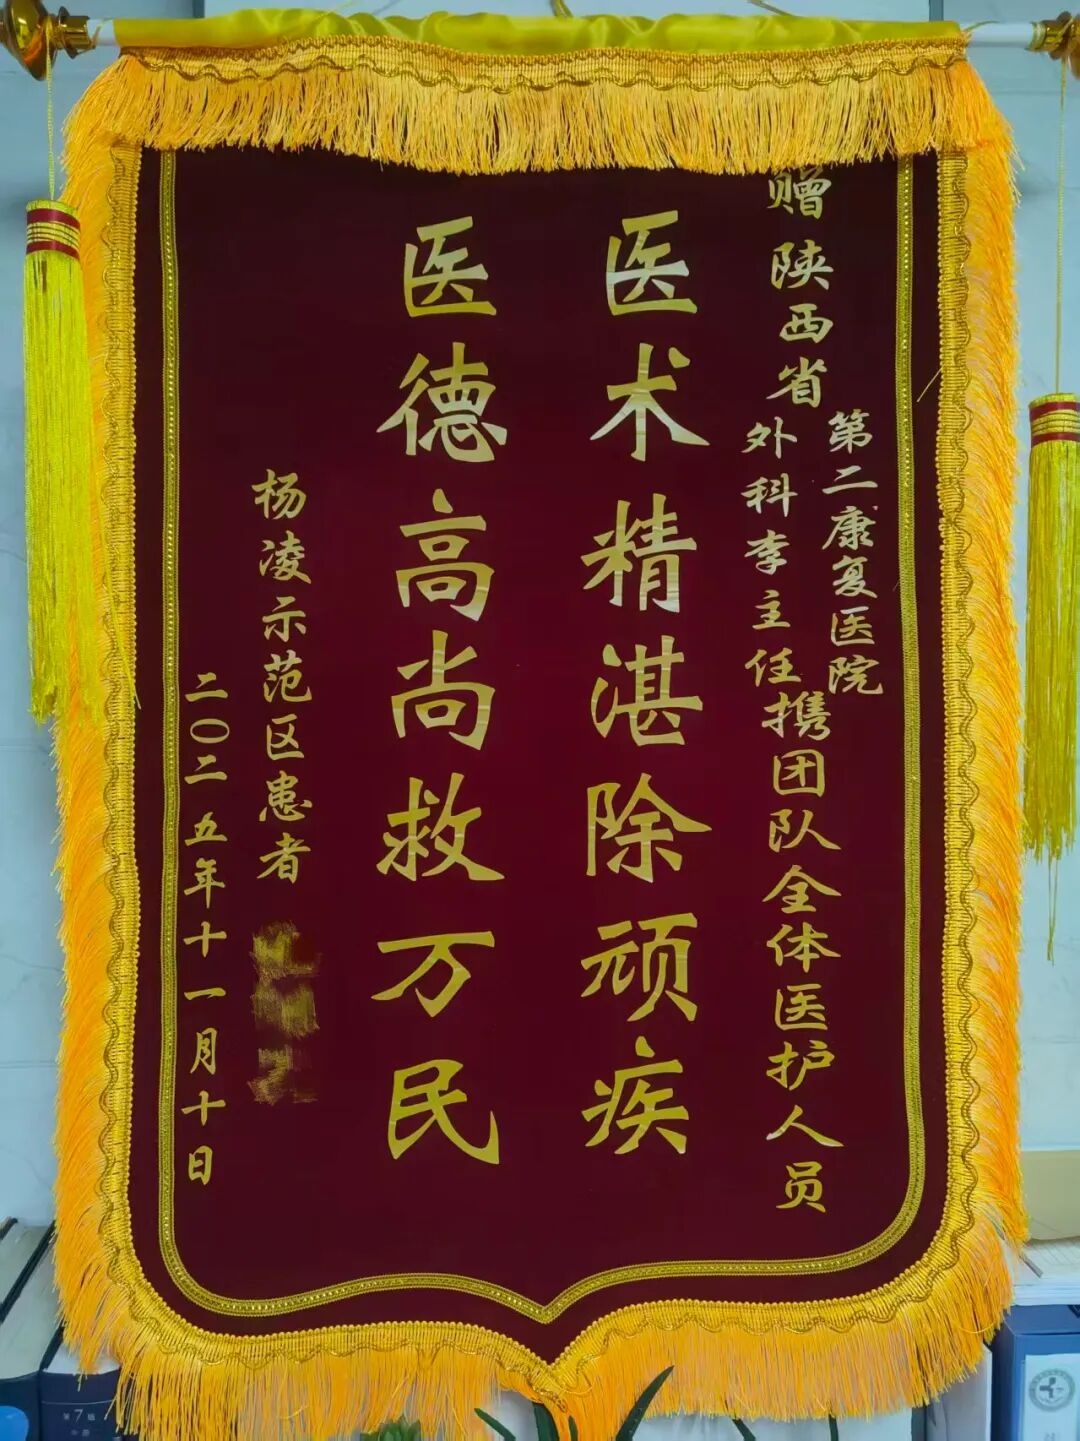 赠陕西省
第二康复医院
外科李主任
携团队全体医护人员
医术精湛除顽疾
医德高尚救万民
杨凌示范区患者
二〇二五年十一月十日
第7版